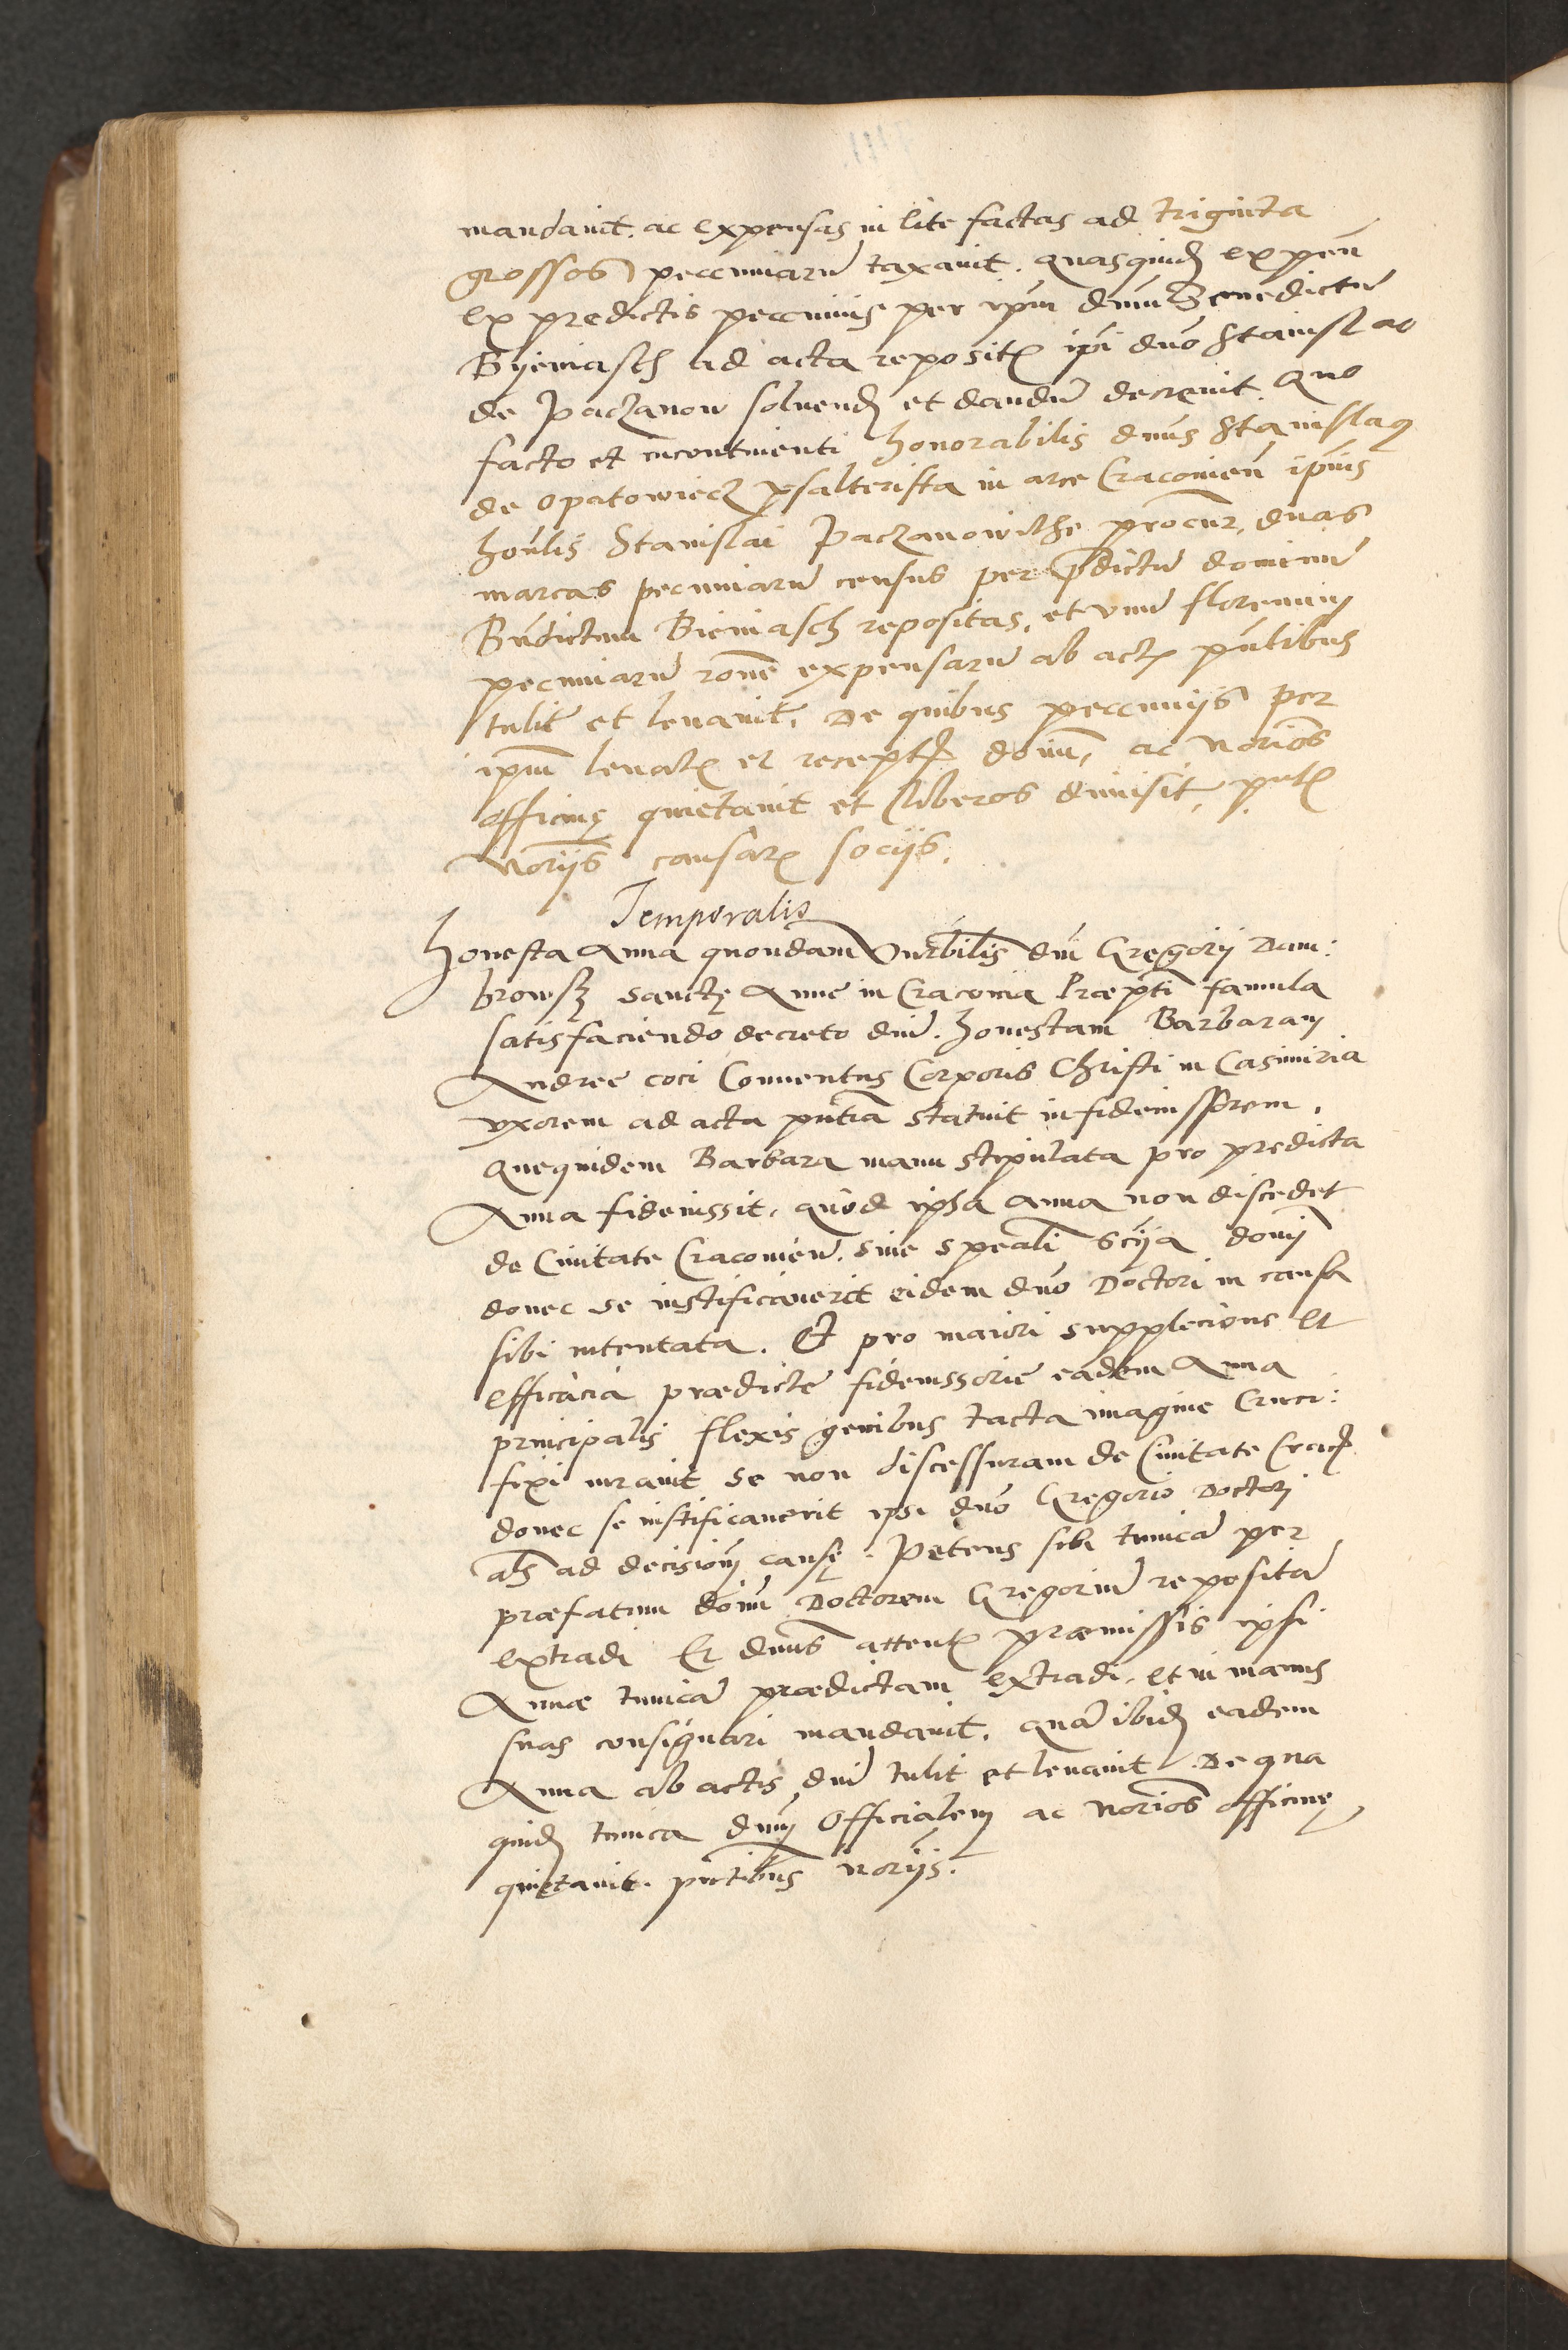 mandavit. ac expensas in lite factas ad triginta
grossos peccuniarũ taxavit. quasquid̃ expeñ
ex predictis peccuniis per ip̃m dnũ Benedictũ
Byeniasch ad acta reposit̃ ip̃i dño Stanislao
de Paczanow solvend̃ et dandũ decrevit. Quo
facto et incontinenti honorabilis dñus Stanislaus
de Opatowiecz psalterista in arce Cracovieñ ip̃ius
hoñlis Stanislai Paczanowithe procur̃, duas
marcas pecuniarũ census per p̃dictũ dominũ
Bñdictum Bieniasch repositas, et vnũ florenum
pecuniarũ rõne expensarũ ab act̃ p̃ntibus
tulit et levavit. De quibus peccuniis per
ip̃um levat̃ et recept̃ doñum, ac norios
officiũ quietavit et liberos dimisit, p̃nt̃
noriis causar̃ sociis.
Temporalis
Honesta Anna quondam Vnẽbilis dñi Gregorii Dam:
browsz sanctę Anne in Cracovia Præp̃ti famula
satisfaciendo decreto dñi. honestam Barbaram
Andree coci Conventus Corporis Christi in Casimiria
vxorem ad acta p̃ntia statuit in fideiussorem.
Quequidem Barbara manu stipulata pro predicta
Anna fideiussit, quod ipsa Anna non discedet
de Civitate Cracovień. sine speãli sciya doñi
donec se iustificaverit eidem dño Doctori in causa
sibi intentata. Et pro maiori supplecione et
efficacia prædicte fideiussorie eadem Anna
principalis flexis genibus tacta imagine Cruci:
fixi iuravit se non discessuram de Civitate Crac̃
donec se iustificaverit ipsi dño Gregorio Doctori
als̃ ad decisioñ causę. Petens sibi tunicã per
præfatum doñum Doctorem Gregoriũ repositã
extradi Et dñus attent̃ præmissis ipsi
Annæ tunicã prædictam extradi, et in manus
suas consignari mandavit. quã ibid̃ eadem
Anna ab actis dñi tulit et levavit. De qua
quid̃ tunica dñum Officialem ac norios officinię
quietavit. p̃ntibus noriis.